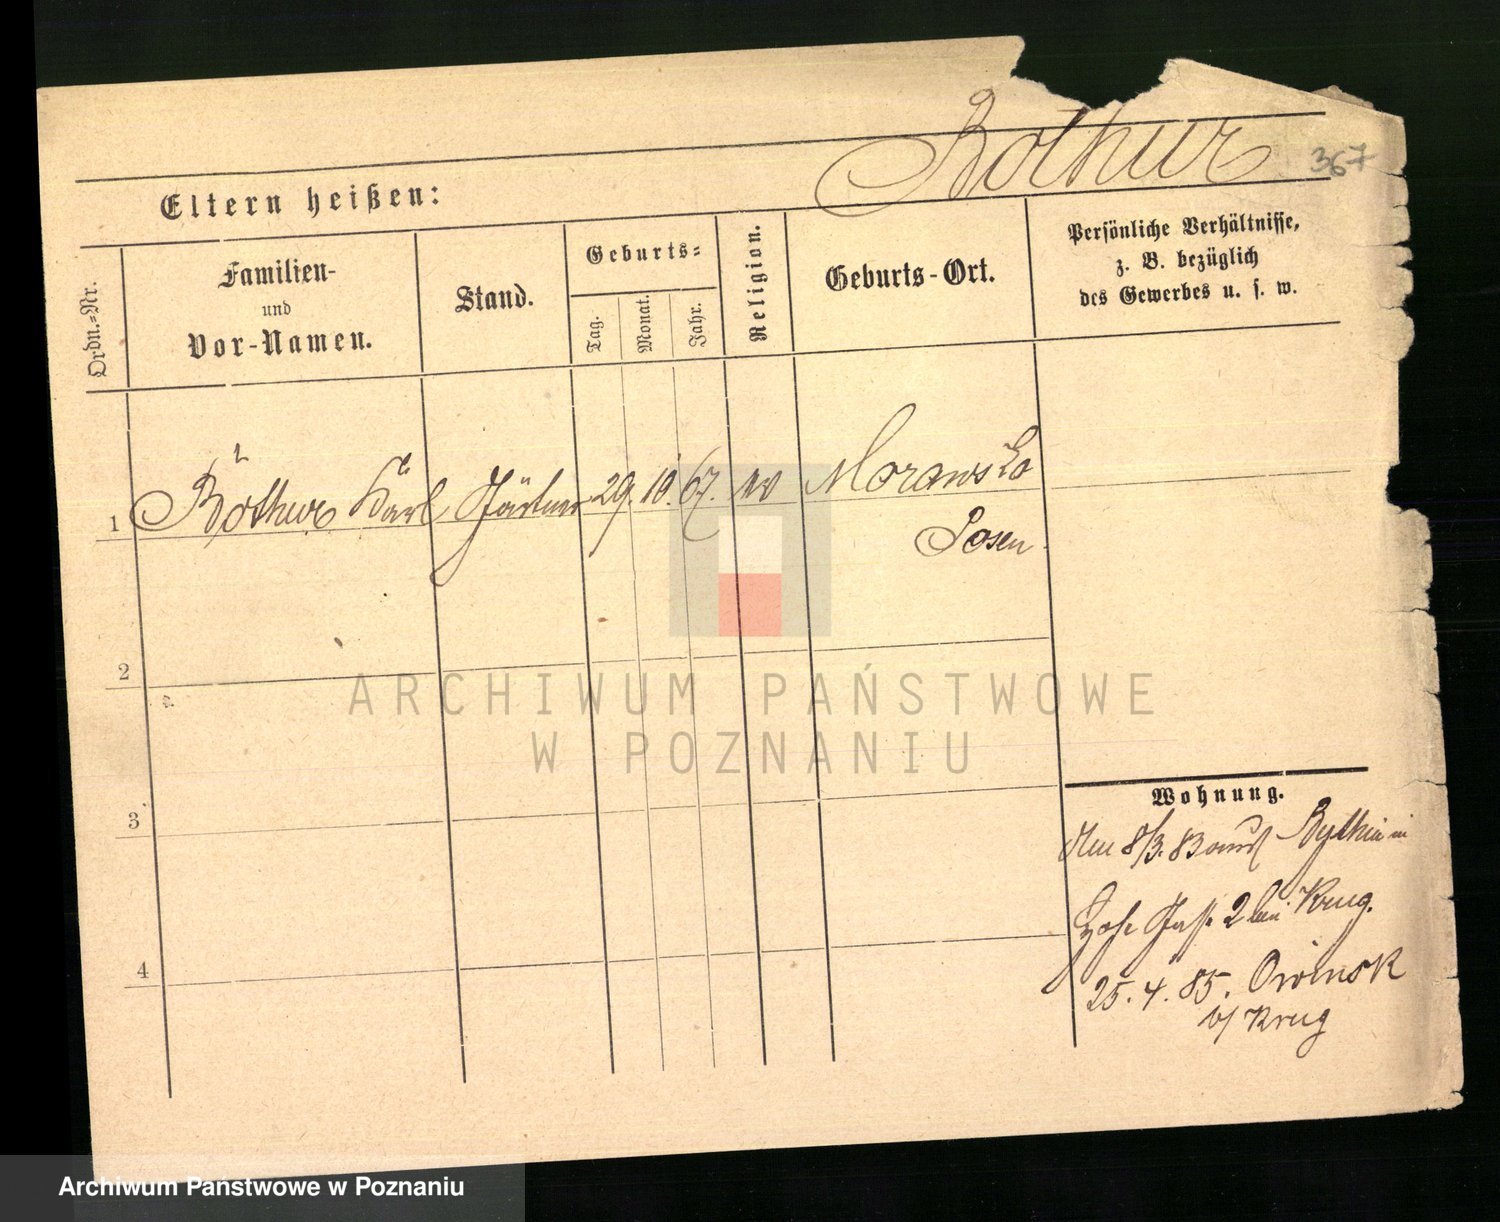 Bothur
367
Eltern heißen:
Ordn.-Nr.
Familien-
und
Vor-Namen.
Stand.
Geburts-
Tag.
Monat.
Jahr.
Religion.
Geburts-Ort.
Persönliche Verhältnisse,
z. B. bezüglich
des Gewerbes u. s. w.
1 Bothur Karl Gärtner 29. 10. 67. ev Morawsko
Posen
2
3
4
Wohnung.
8/3. 83 Bythin
2 bei Krug.
25. 4. 85. Owinsk
b/ Krug
ARCHIWUM PAŃSTWOWE
W POZNANIU
Archiwum Państwowe w Poznaniu